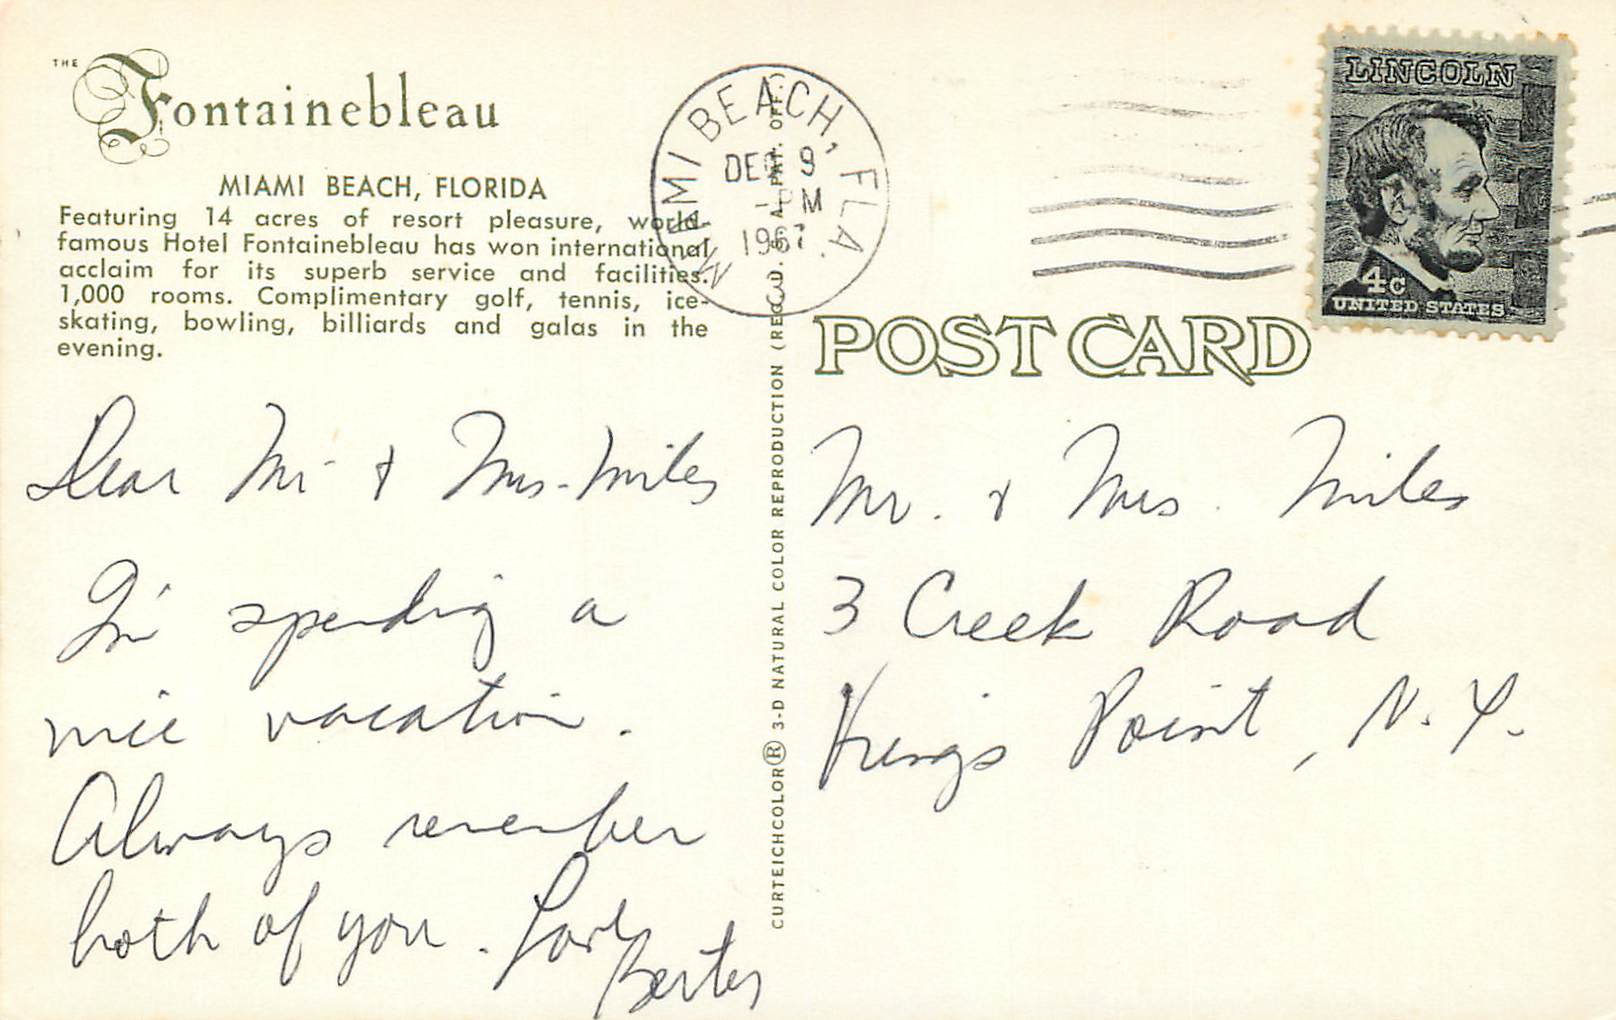 THE
Fontainebleau
MIAMI BEACH, FLORIDA
Featuring 14 acres of resort pleasure, world-
famous Hotel Fontainebleau has won international
acclaim for its superb service and facilities.
1,000 rooms. Complimentary golf, tennis, ice-
skating, bowling, billiards and galas in the
evening.
Dear Mr & Mrs. Miles
I'm spending a
nice vacation.
Always remember
both of you.
CURTEICHCOLOR® 3-D NATURAL COLOR REPRODUCTION (REG'D. U.S.A. PAT. OFF.)
MIAMI BEACH, FLA.
DEC 9
PM
1967
LINCOLN
4c
UNITED STATES
POST CARD
Mr. & Mrs. Miles
3 Creek Road
Kings Point, N.Y.